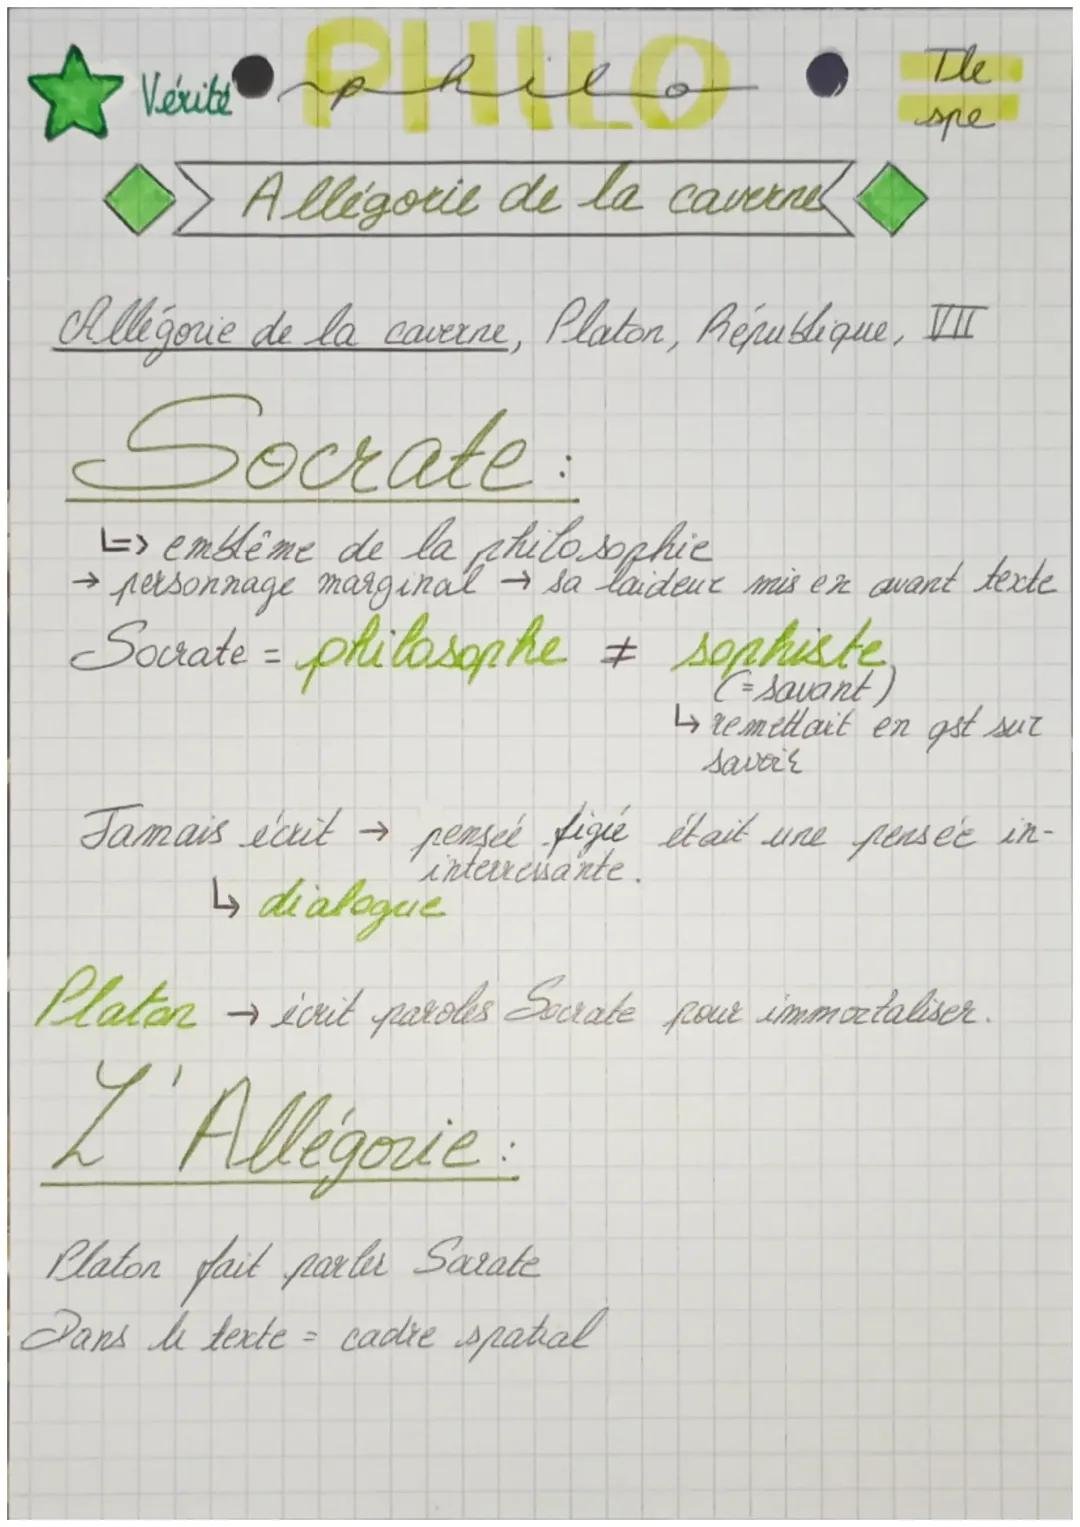 Vérité
PHILO
philo
Tle
spe
Allégorie de la caverne
Allégorie de la caverne, Platon, République, VII
Socrate :
↳> emblême de la philosophie
→ personnage marginal → sa laideur mis en avant texte
Socrate = philosophe ≠ sophiste
(= savant)
↳ remettait en qst sur
savoir
Jamais écrit → penseé figié était une pensée in-
interressante.
↳ dialogue
Platon → écrit paroles Socrate pour immortaliser.
L'Allégorie :
Platon fait parler Socrate
Dans le texte = cadre spatial